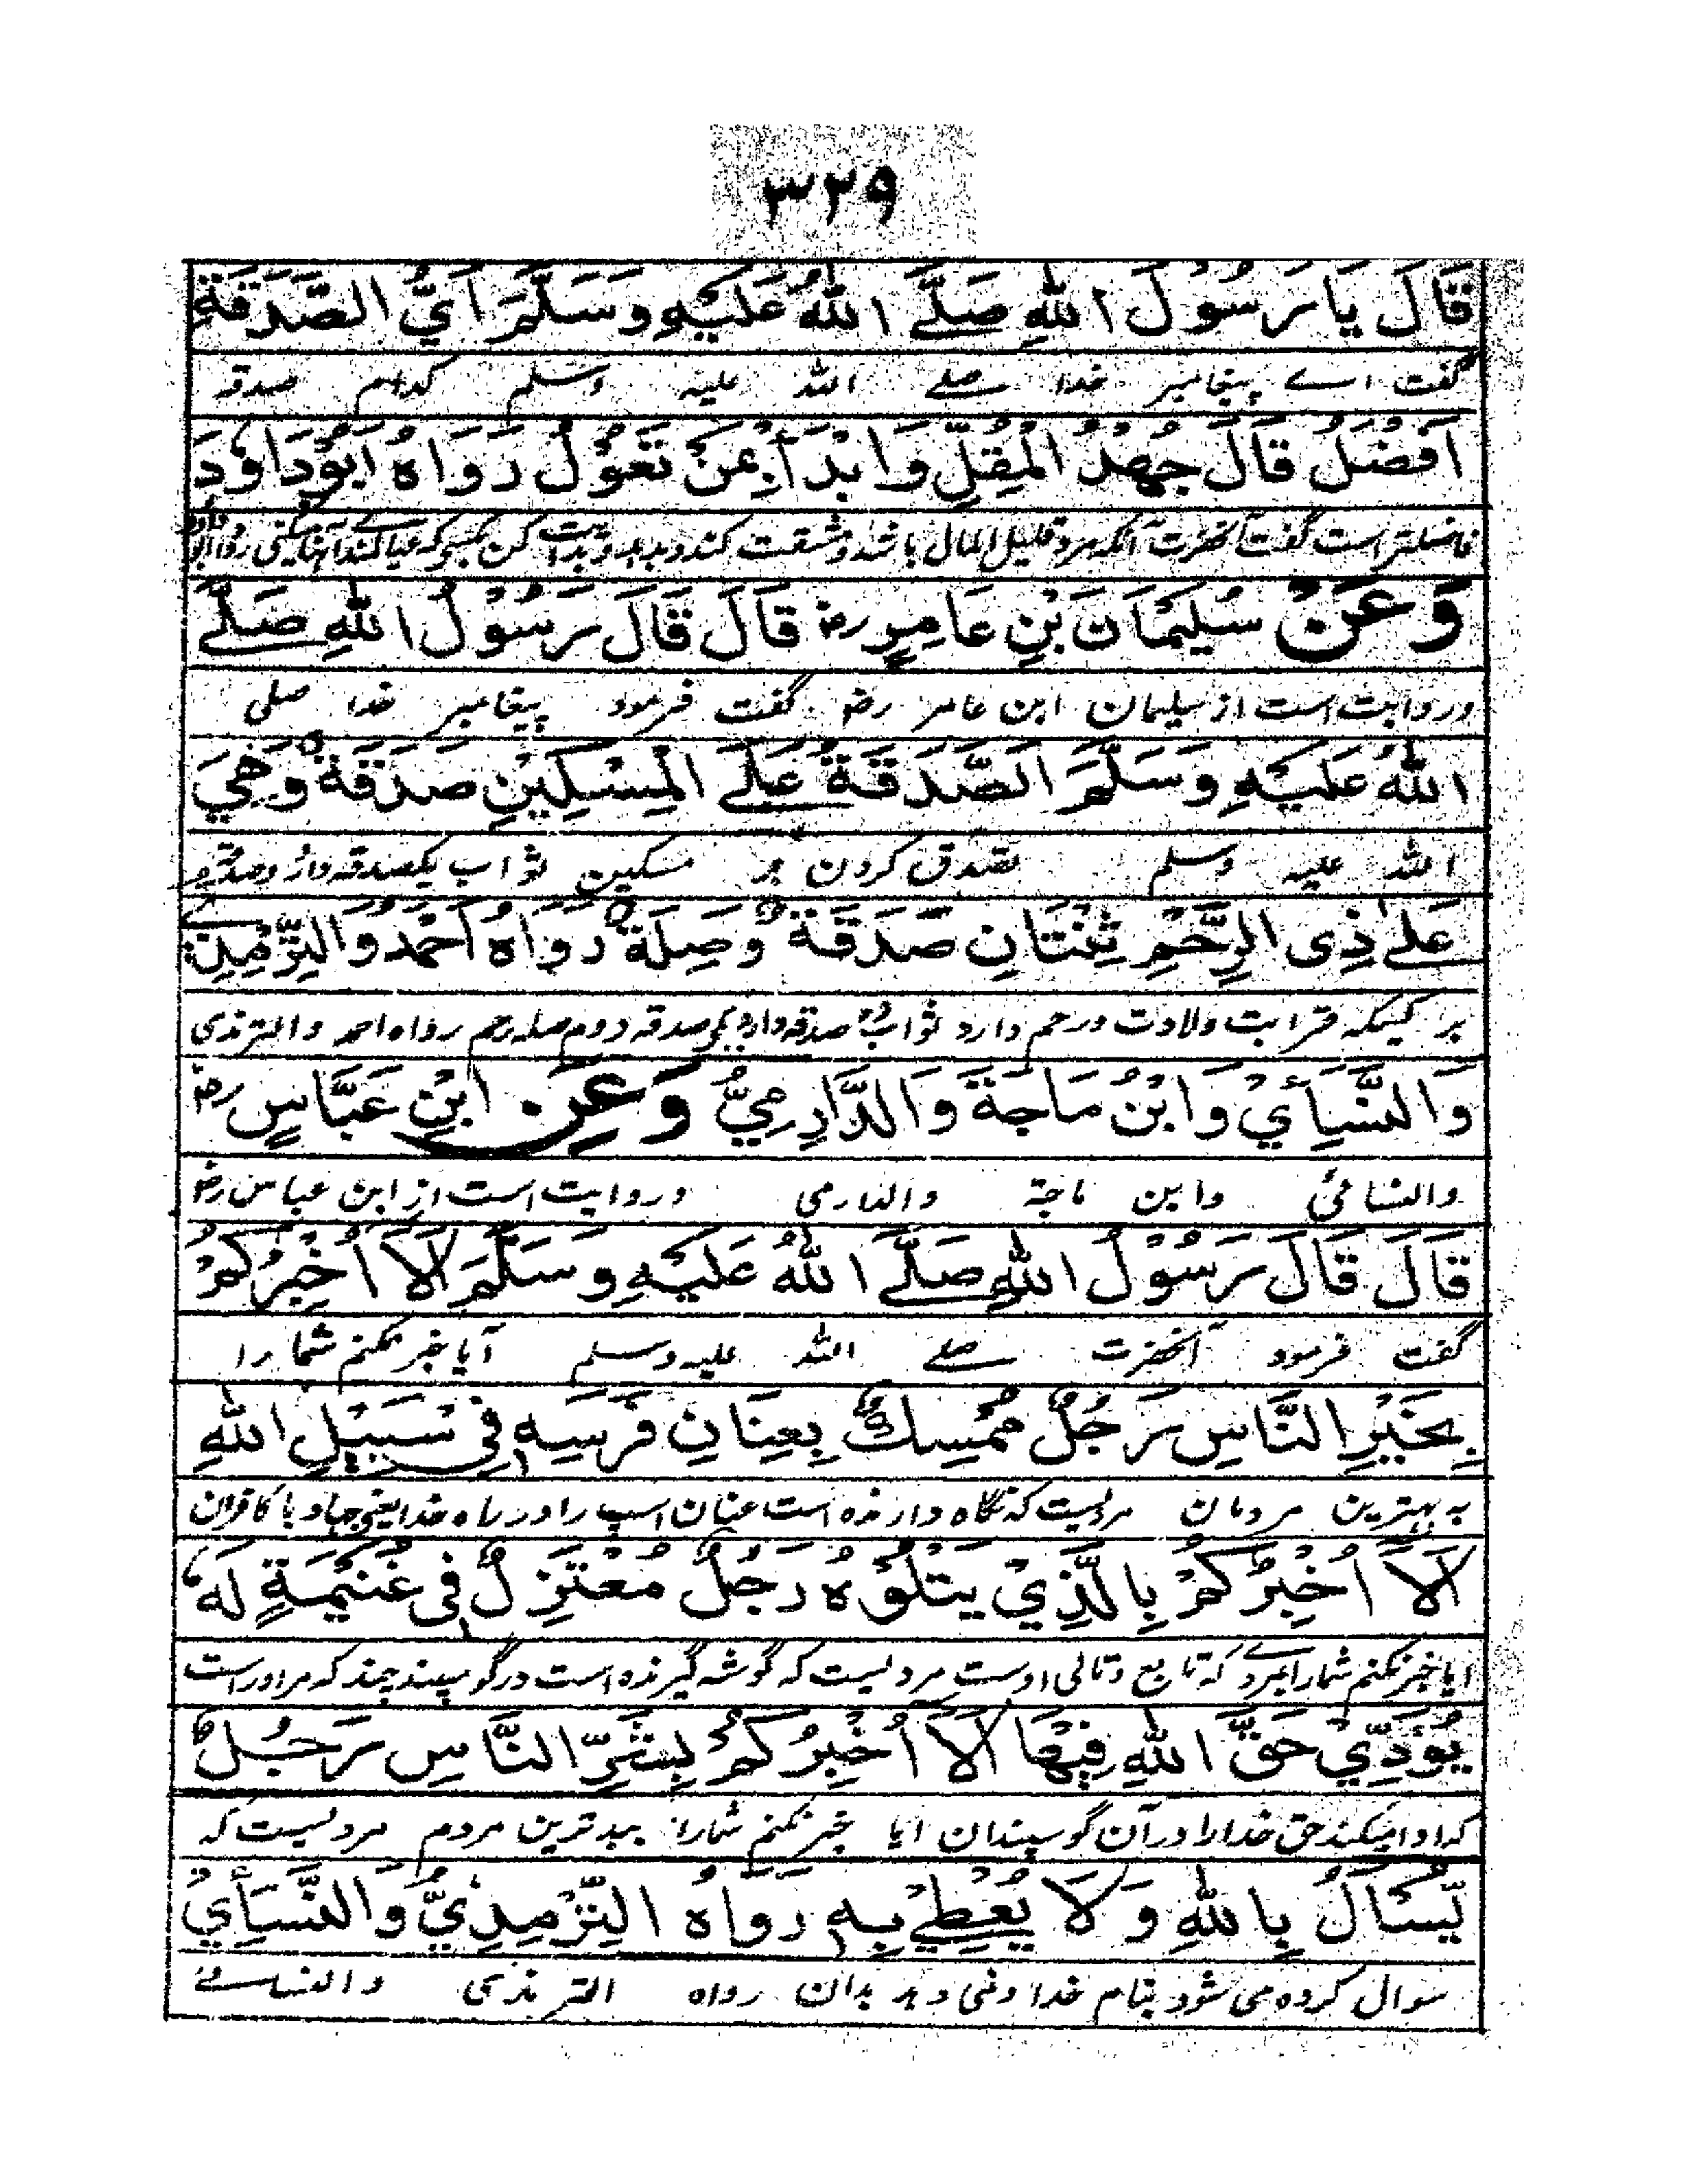 ٣٢٩
قَالَ يَا رَسُوْلَ اللهِ صَلَّے اللهُ عَلَيْهِ وَسَلَّمَ اَيُّ الصَّدَقَةِ
گفت اے پیغامبر خدا صلے اللہ علیہ وسلم کدام صدقہ
اَفْضَلُ قَالَ جُهْدُ الْمُقِلِّ وَابْدَأْ بِمَنْ تَعُوْلُ رَوَاهُ اَبُوْدَاوٗدَ
فاضلتر است گفت آنحضرت آنکہ مرد قلیل المال باشد و مشقت کند و بدہد و بدایت کن
وَعَنْ سُلَيْمَانَ بْنِ عَامِرٍ رض قَالَ قَالَ رَسُوْلُ اللهِ صَلَّے
و روایت است از سلیمان ابن عامر رض گفت فرمود پیغامبر خدا صلی
اللهُ عَلَيْهِ وَسَلَّمَ الصَّدَقَةُ عَلَے الْمِسْكِيْنِ صَدَقَةٌ وَهِيَ
اللہ علیہ وسلم تصدق کردن بر مسکین ثواب یکصدقہ دارد و صدقہ
عَلٰے ذِی الرَّحِمِ ثِنْتَانِ صَدَقَةٌ وَصِلَةٌ رَوَاهُ اَحْمَدُ وَالتِّرْمِذِيُّ
بر کسیکہ قرابت ولادت و رحم دارد ثواب دو صدقہ دارد یکی صدقہ دوم صلہ رحم رواہ احمد والترمذی
وَالنَّسَأئِيْ وَابْنُ مَاجَةَ وَالدَّارِمِيُّ وَعَنِ ابْنِ عَبَّاسٍ رض
والنسائی وابن ماجة والدارمی و روایت است از ابن عباس رض
قَالَ قَالَ رَسُوْلُ اللهِ صَلَّے اللهُ عَلَيْهِ وَسَلَّمَ اَلَا اُخْبِرُكُمْ
گفت فرمود آنحضرت صلے اللہ علیہ وسلم آیا خبر نکنم شما را
بِخَيْرِ النَّاسِ رَجُلٌ مُمْسِكٌ بِعِنَانِ فَرَسِهٖ فِيْ سَبِيْلِ اللهِ
بہ بہترین مردمان مردیست کہ نگاہ دارندہ است عنان اسپ را در راہ خدا یعنی جہاد با کافران
اَلَا اُخْبِرُكُمْ بِالَّذِيْ يَتْلُوْهُ رَجُلٌ مُعْتَزِلٌ فِی غُنَيْمَةٍ لَهٗ
آیا خبر نکنم شمارا بمردے کہ تابع و تالی اوست مردیست کہ گوشہ گیرندہ است در گوسپند چند کہ مر اوراست
يُؤَدِّيْ حَقَّ اللهِ فِيْهَا اَلَا اُخْبِرُكُمْ بِشَرِّ النَّاسِ رَجُلٌ
کہ ادا میکند حق خدا را در آن گوسپندان آیا خبر نکنم شمارا بہ بدترین مردم مردیست کہ
يُسْئَالُ بِاللهِ وَلَا يُعْطِيْ بِهٖ رَوَاهُ التِّرْمِذِيُّ وَالنَّسَأئِيْ
سوال کردہ می شود بنام خدا و نمی دہد بدان رواہ الترمذی والنسائے